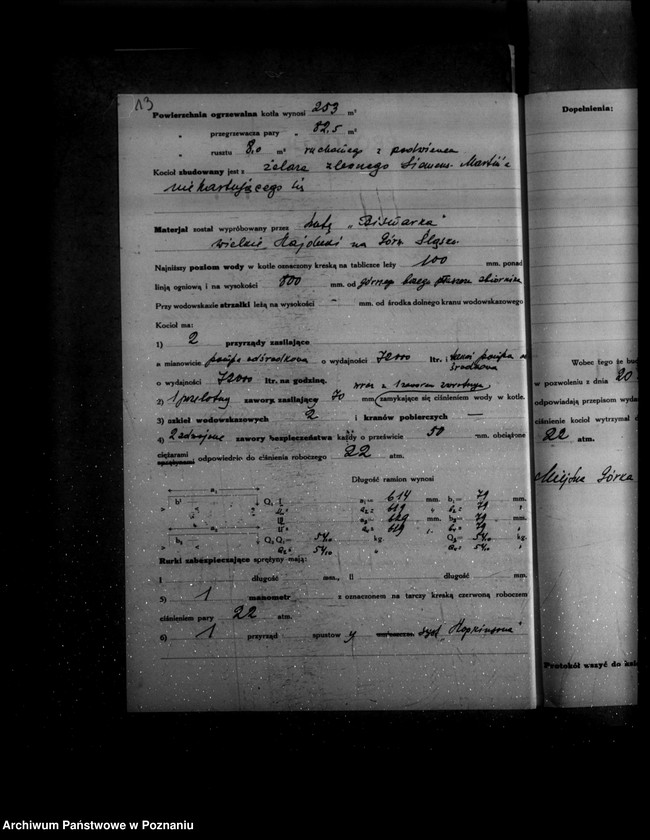 13
Powierzchnia ogrzewalna kotła wynosi 253 m²
„ przegrzewacza pary „ 82,5 m²
„ rusztu 8,0 m² ruchomego z podwiewem
Kocioł zbudowany jest z żelaza zlewnego Siemens Martin'a
niehartującego się
Materjał został wypróbowany przez hutę „Bismarka"
Wielkie Hajduki na Górn. Śląsku
Najniższy poziom wody w kotle oznaczony kreską na tabliczce leży 100 mm. ponad
linją ogniową i na wysokości 800 mm. od górnego brzegu zbiornika
Przy wodowskazie strzałki leżą na wysokości – mm. od środka dolnego kranu wodowskazowego
Kocioł ma:
1) 2 przyrządy zasilające
a mianowicie pompa odśrodkowa o wydajności 72000 ltr. i pompa odśrodkowa
o wydajności 72000 ltr. na godzinę. wraz z 1 zaworem zwrotnym
2) 1 przelotny zawory zasilający 70 mm (zamykające się ciśnieniem wody w kotle.
3) szkieł wodowskazowych 2 i kranów pobierczych —
4) 2 zawory bezpieczeństwa każdy o prześwicie 50 mm. obciążone
ciężarami
sprężynami odpowiednio do ciśnienia roboczego 22 atm.
Długość ramion wynosi
a₁ Q₁ a₁ = 614 mm. b₁ = 79 mm.
b¹ a₂ = 619 „ b₂ = 79 „
a₂ a₃ = 619 mm. b₃ = 79 mm.
a₄ = 619 „ b₄ = 79 „
b₂ Q₂ Q₁ = kg. Q₃ = kg.
Rurki zabezpieczające sprężyny mają:
I długość mm., II długość mm.
5) 1 manometr z oznaczonem na tarczy kreską czerwoną roboczem
ciśnieniem pary 22 atm.
6) 1 przyrząd spustowy syst. „Hopkinsona"
Dopełnienia:
Wobec tego że
w pozwoleniu z dnia 20
odpowiadają przepisom
ciśnienie kocioł wytrzymał
22 atm.
Miejska Górka
Protokół wszyć do
Archiwum Państwowe w Poznaniu